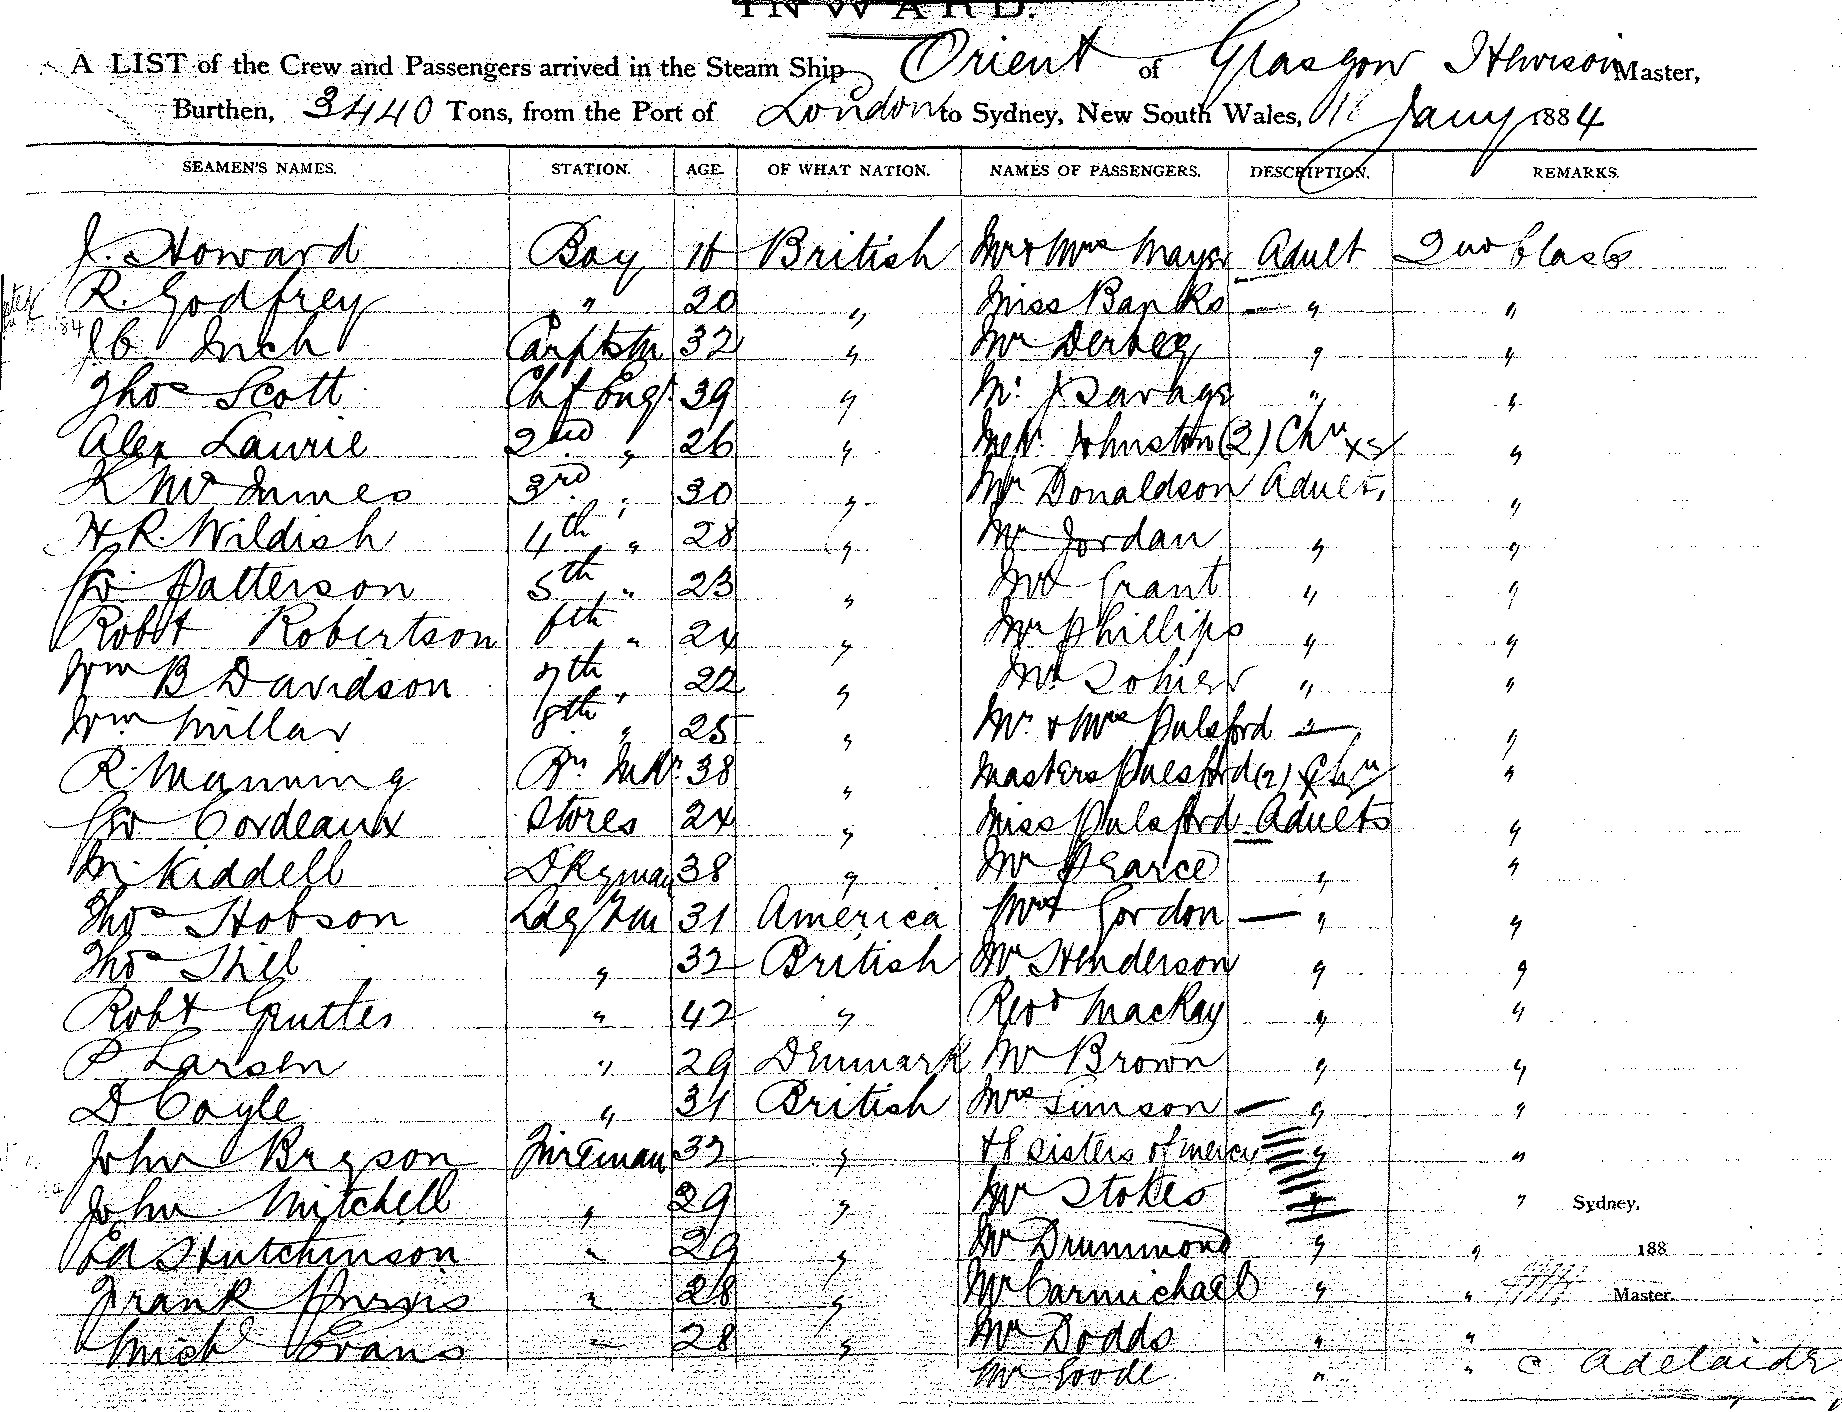 INWARD.
A LIST of the Crew and Passengers arrived in the Steam Ship Orient of Glasgow Hewison Master,
Burthen, 3440 Tons, from the Port of London to Sydney, New South Wales, Jany 1884
SEAMEN'S NAMES. STATION. AGE. OF WHAT NATION. NAMES OF PASSENGERS. DESCRIPTION. REMARKS.
J. Howard Boy British Mr & Mrs Mayer Adult 2nd Class
R. Godfrey " 20 " Miss Banks — " "
J.C. Inch 32 " Mr " "
Thos Scott Chf Engr 39 " Mr J Savage " "
Alex Laurie 2nd " 26 " Johnston (2) Chn "
K McInnes 3rd " 30 " Mr Donaldson Adults "
H R. Wildish 4th " 28 " Mr Jordan " "
Geo Patterson 5th " 23 " Mr Grant " "
Robt Robertson 6th " 24 " Mr Phillips " "
Wm B Davidson 7th " 22 " Mr Sohier " "
Wm Millar 8th " 25 " Mr & Mrs Pulsford " "
R. Manning 38 " Masters Pulsford (2) Chn "
Geo Cordeaux Stores 24 " Miss Pulsford Adults "
M. Kiddell Dkyman 38 " Mr Pearce " "
Thos Hobson Ldg Fm 31 America Mrs Gordon — " "
Thos Shiel " 32 British Mr Henderson " "
Robt " 42 " Revd MacKay " "
P Larsen " 29 Denmark Mr Brown " "
D Coyle " 31 British Mrs Simson — " "
John Bryson Fireman 32 " & 8 Sisters of mercy " "
John Mitchell " 29 " Mr Stokes " " Sydney,
Ed Hutchinson " 29 " Mr Drummond " " 188
Frank Purvis " 28 " Mr Carmichael " " Master.
Michl Evans " 28 " Mr Dodds " "
Mr Goode " " Adelaide